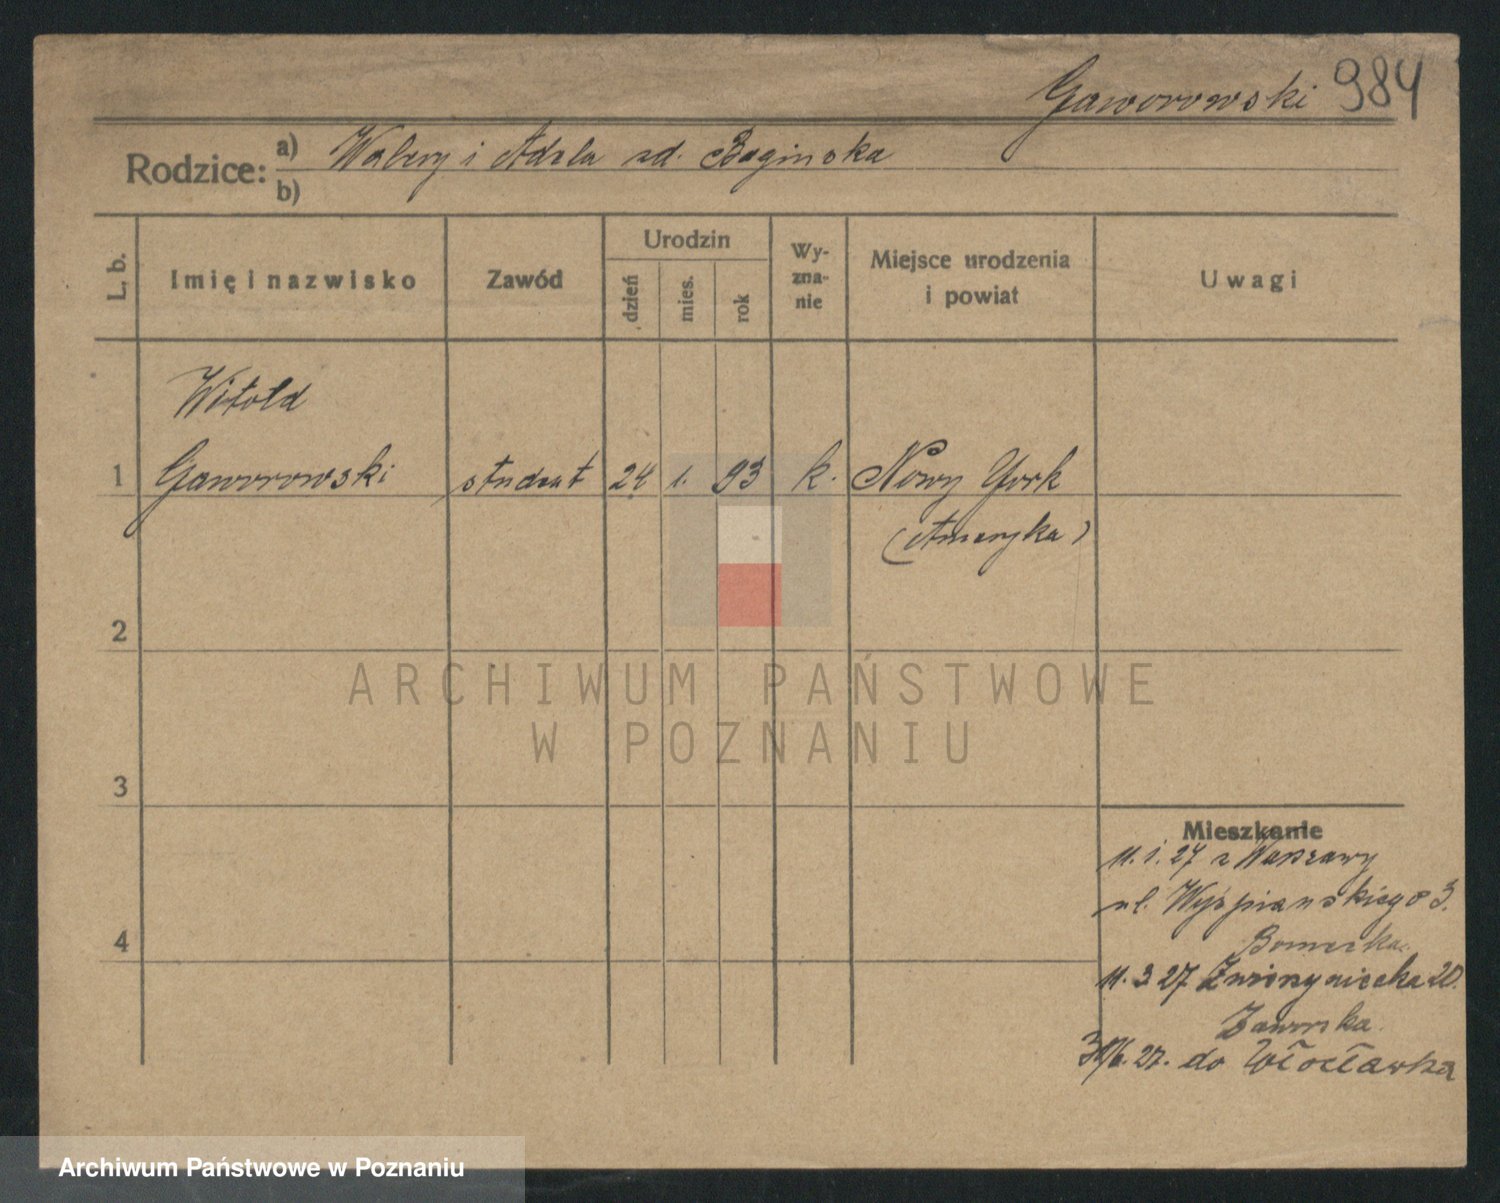 Gaworowski 984
Rodzice: a) Walery i Adela zd. Baginska
b)
L. b. Imię i nazwisko Zawód Urodzin dzień mies. rok Wyznanie Miejsce urodzenia i powiat Uwagi
Witold
1 Gaworowski student 24 1. 93 k. Nowy York
(Ameryka)
2
ARCHIWUM PAŃSTWOWE
W POZNANIU
3
Mieszkanie
11. 1. 27 z Warszawy
ul. Wyspianskiego 3.
4
11. 3 27 Zwierzyniecka 20.
Jaworska
30/6. 27. do Włocławka
Archiwum Państwowe w Poznaniu